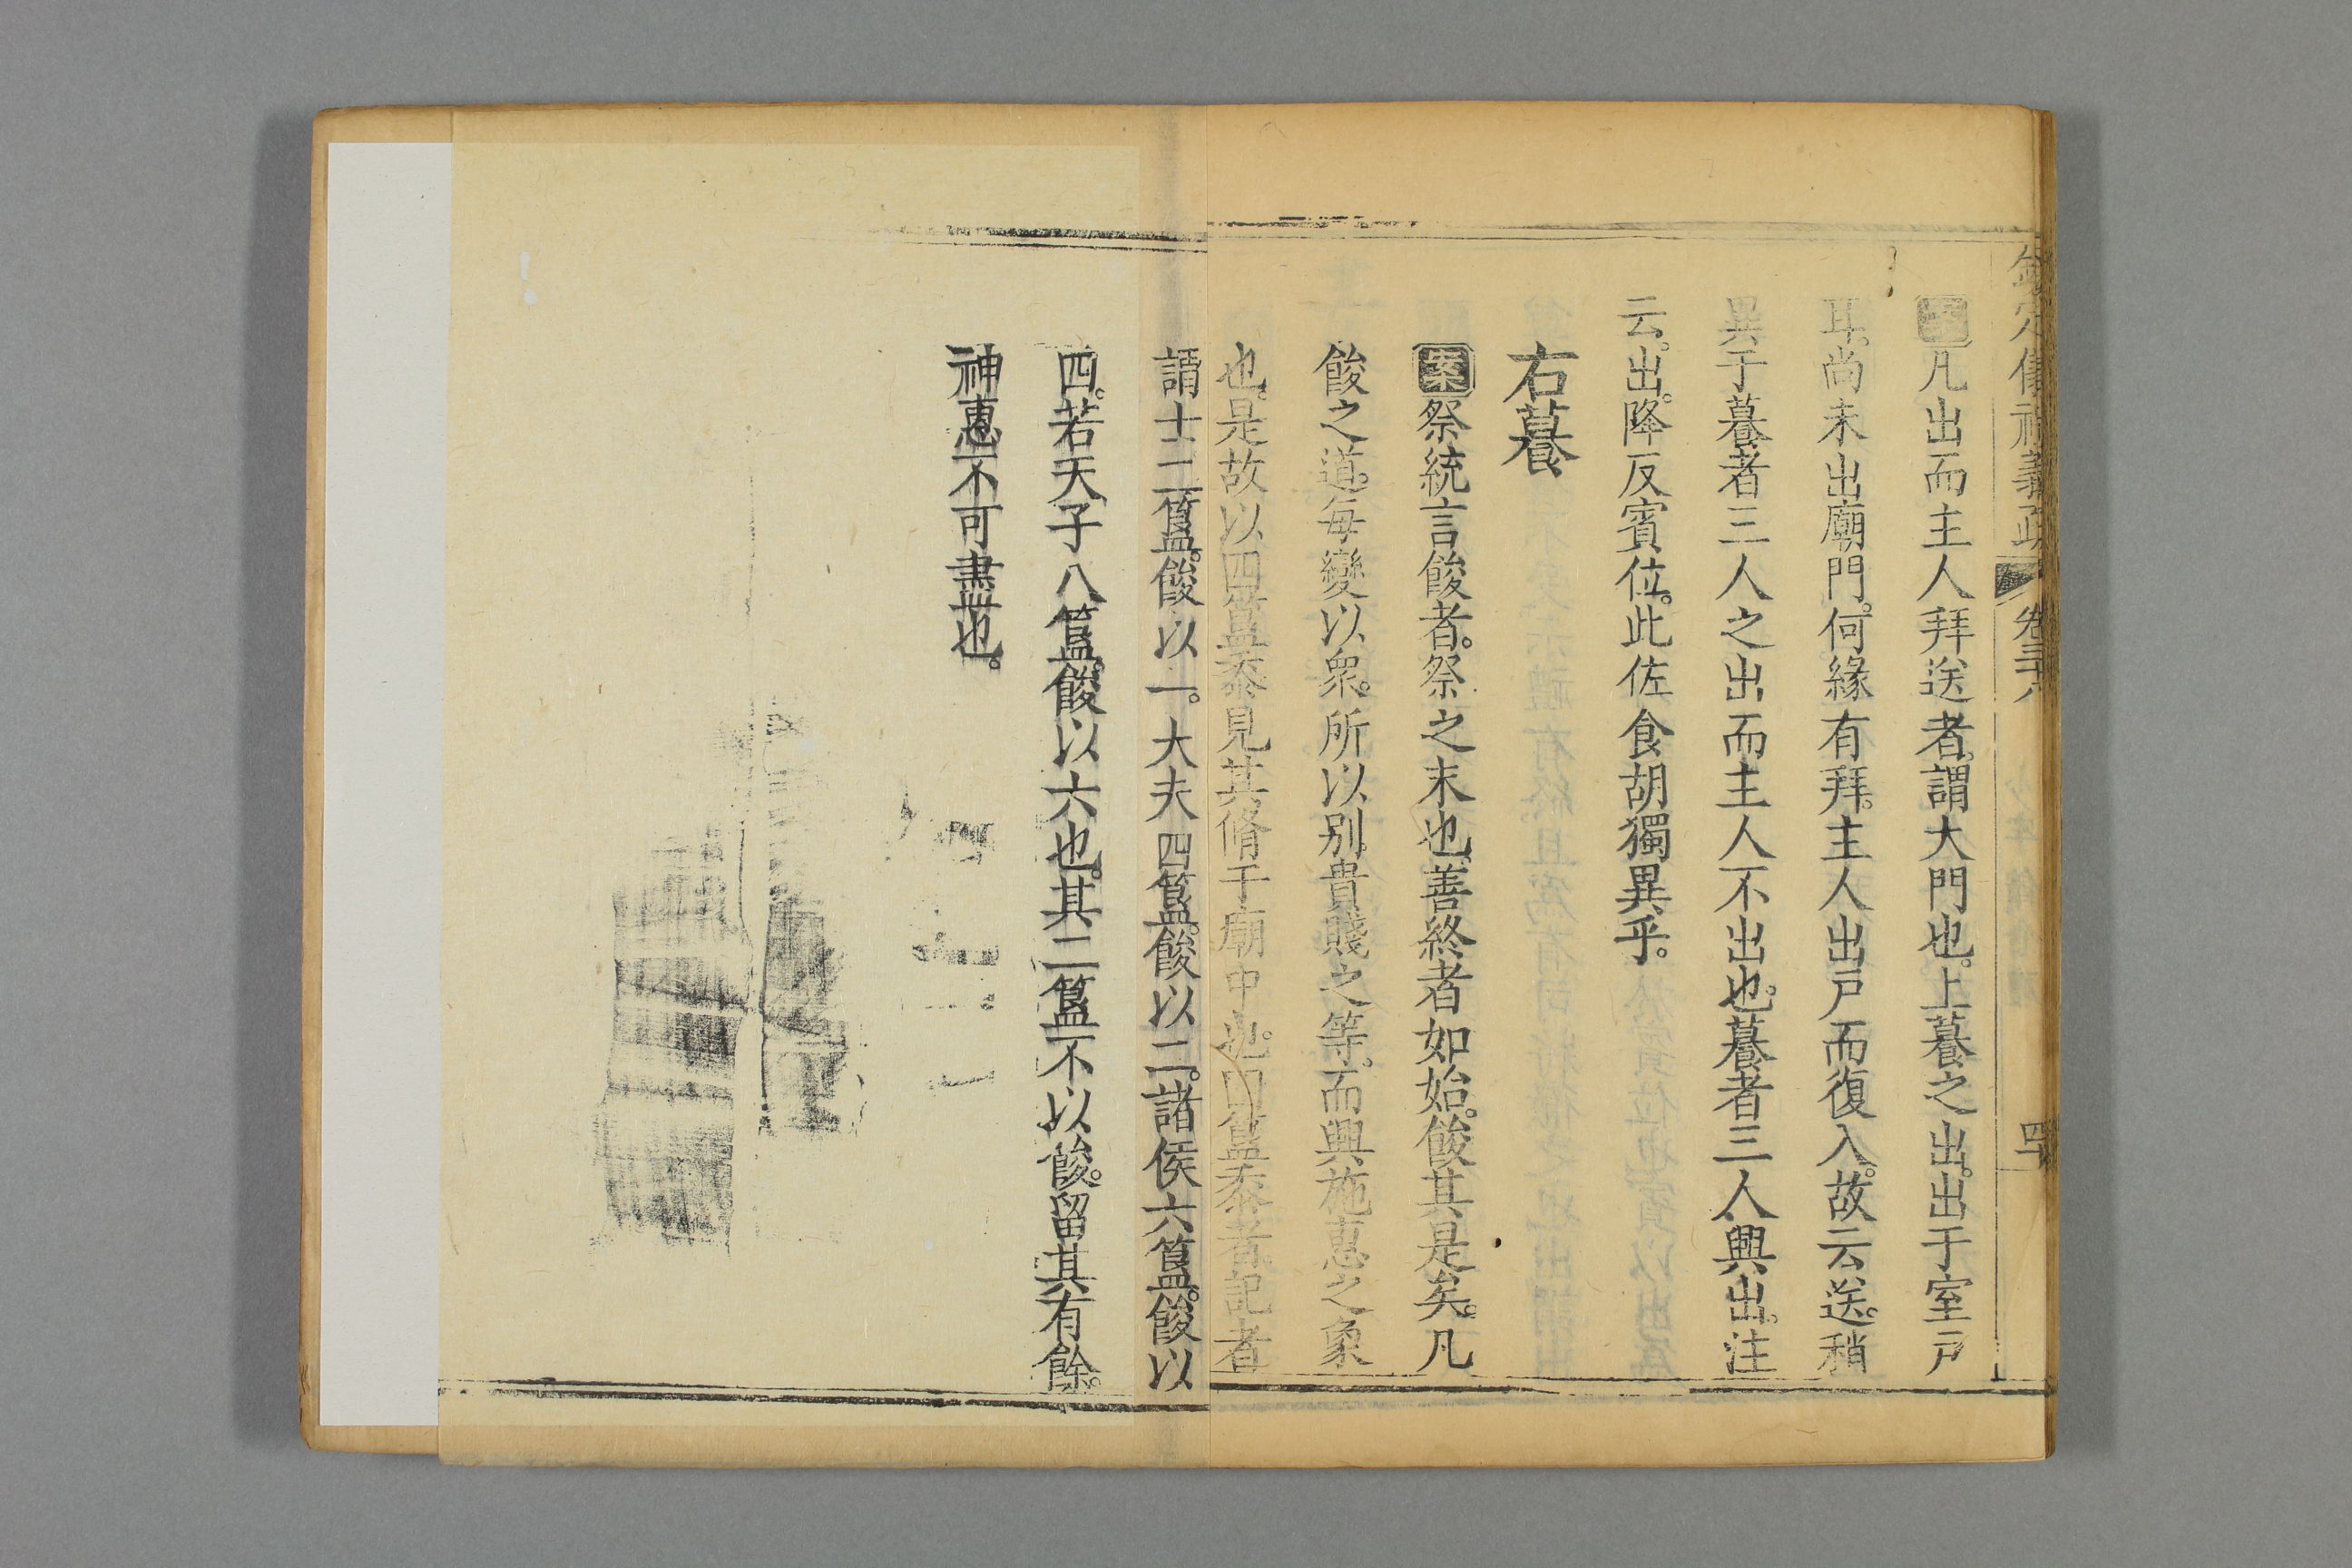 欽定儀禮義疏 卷三十八 四
案凡出而主人拜送者。謂大門也。上䉵之出。出于室戶
耳。尚未出廟門。何緣有拜。主人出戶而復入。故云送。稍
異于䉵者三人之出而主人不出也。䉵者三人興出。注
云。出。降反賓位。此佐食胡獨異乎。
右䉵
案祭統言餕者。祭之末也。善終者如始。餕其是矣。凡
餕之道。每變以衆。所以别貴賤之等。而興施惠之象
也。是故以四簋黍見其脩于廟中也。四簋黍者。記者
謂士二簋。餕以一。大夫四簋。餕以二。諸侯六簋。餕以
四。若天子八簋。餕以六也。其二簋不以餕。留其有餘。
神惠不可盡也。